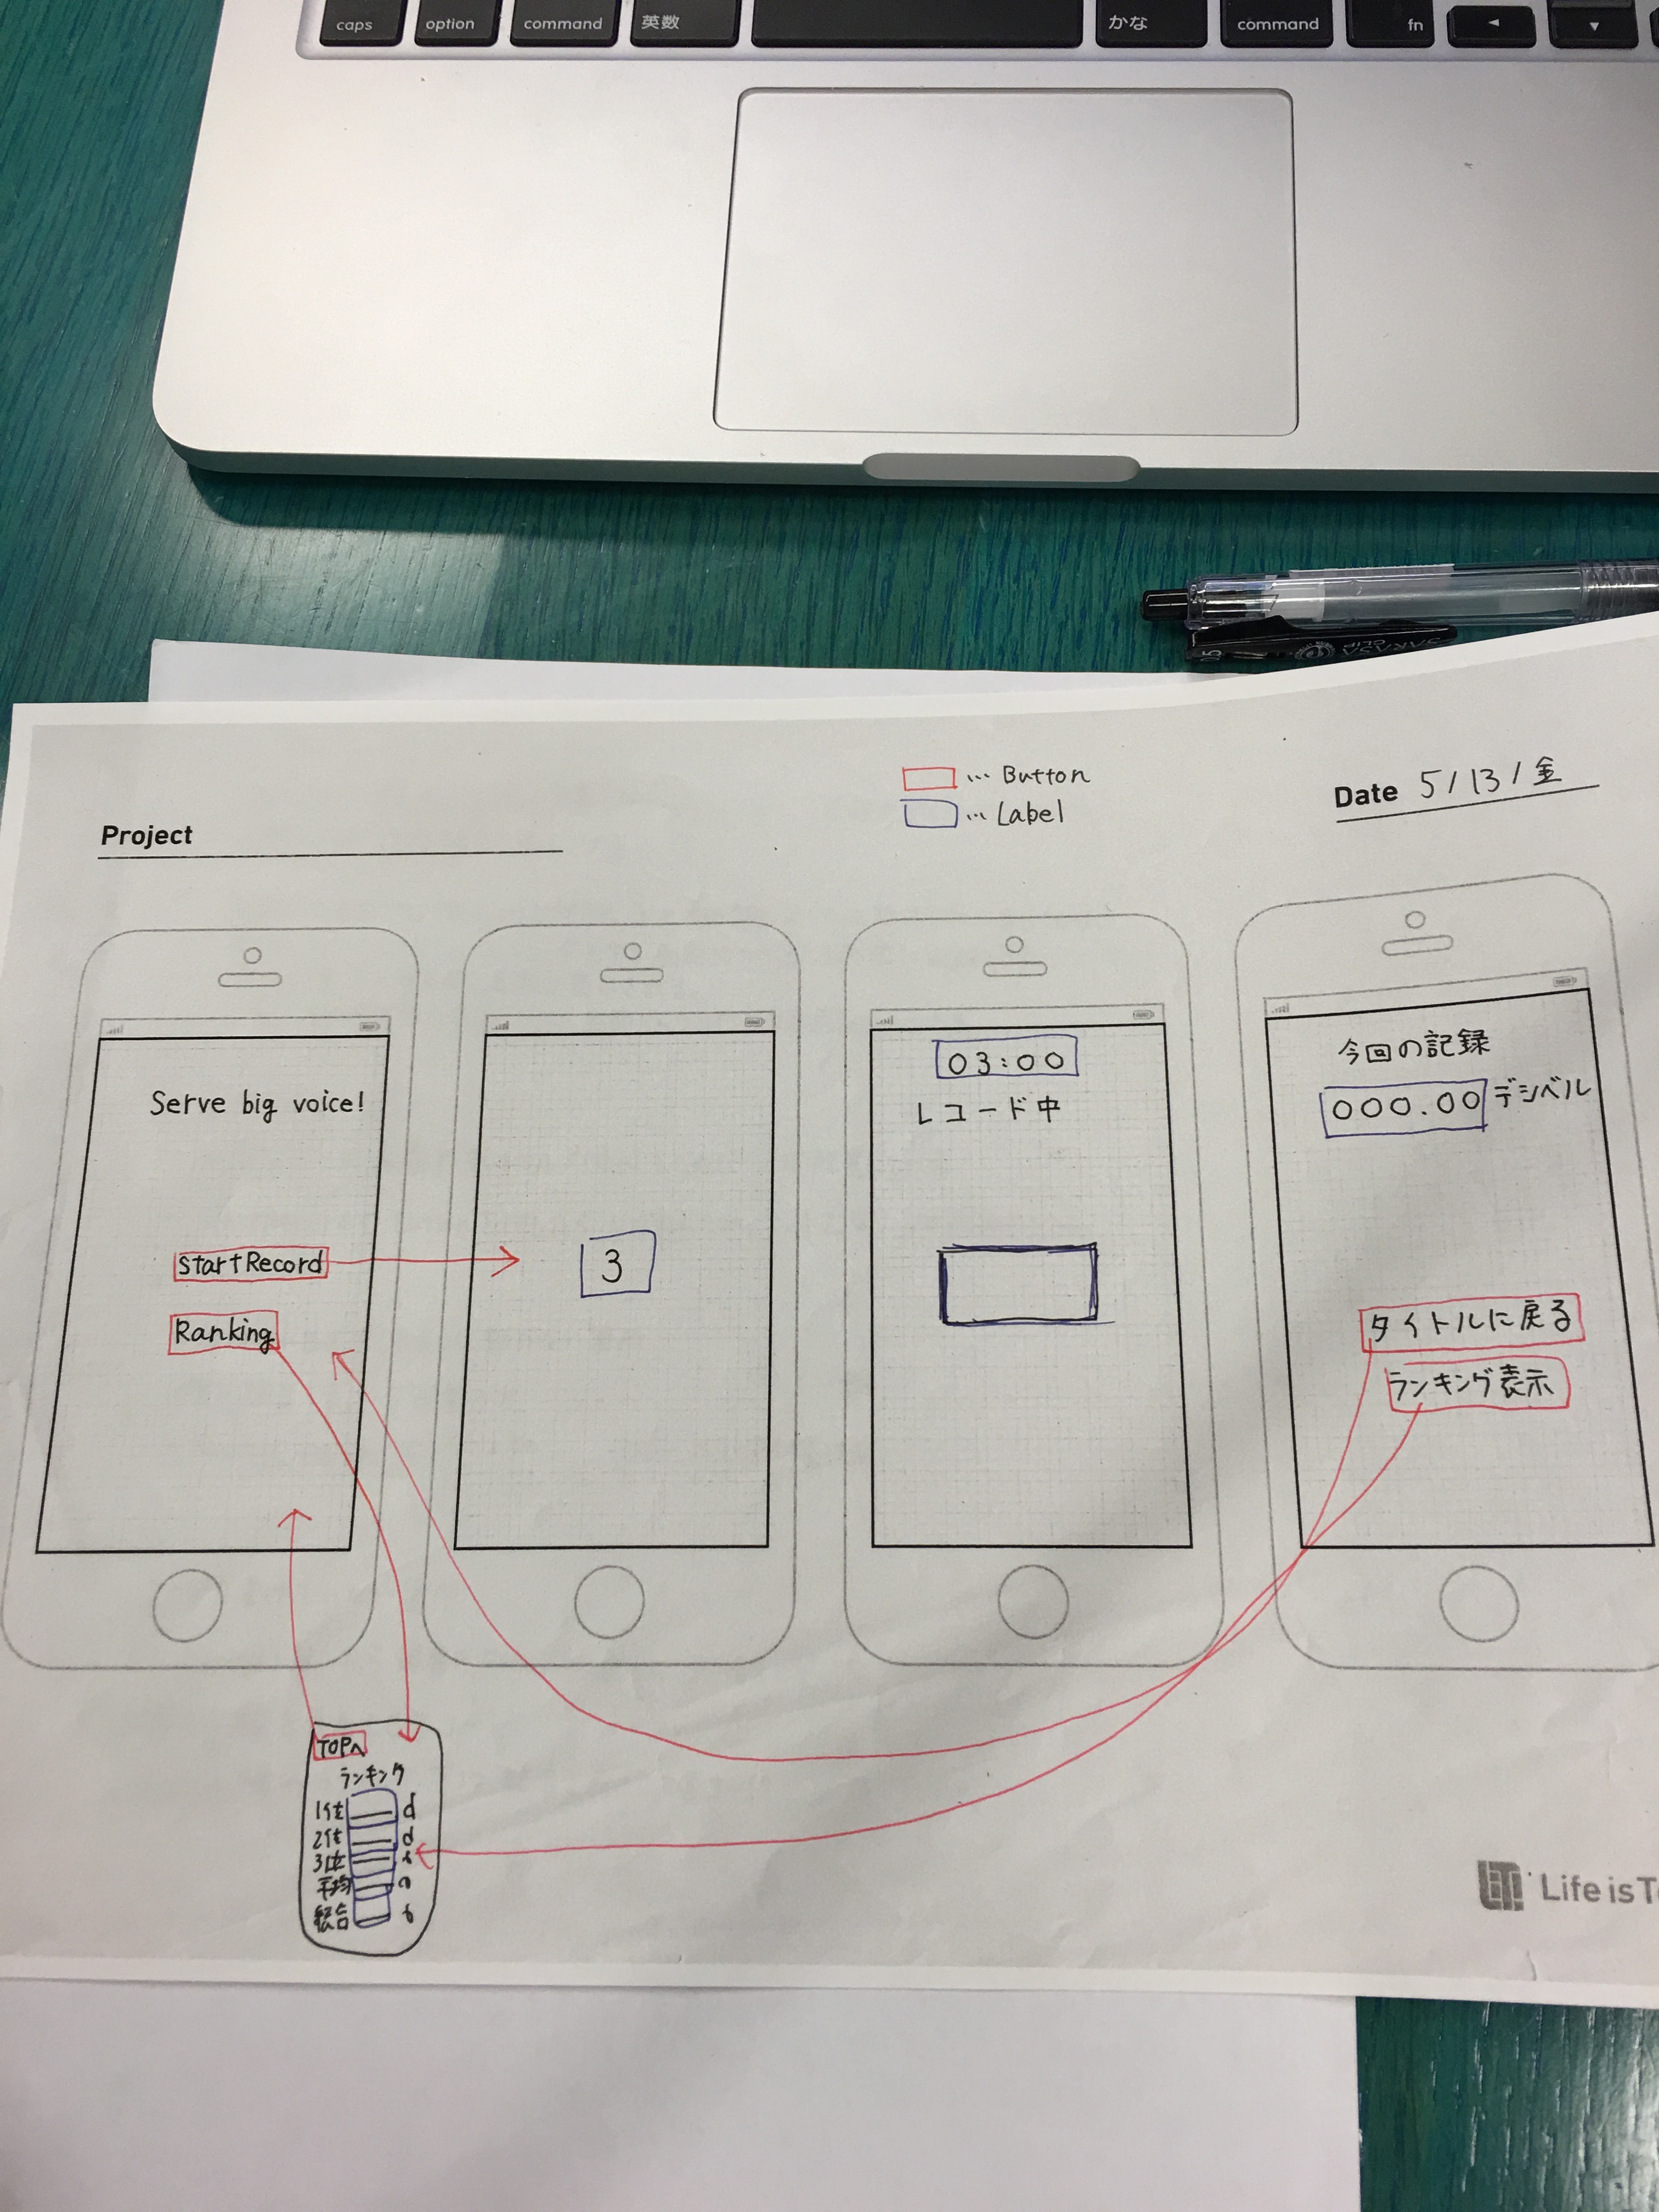 caps option command 英数 かな command fn
SARASA CLIP 0.5
… Button
… Label
Date 5/13/金
Project
Serve big voice!
StartRecord
Ranking
3
03:00
レコード中
今回の記録
000.00 デシベル
タイトルに戻る
ランキング表示
TOPへ
ランキング
1位 d
2位 d
3位
平均
総合
LiT! Life is Te